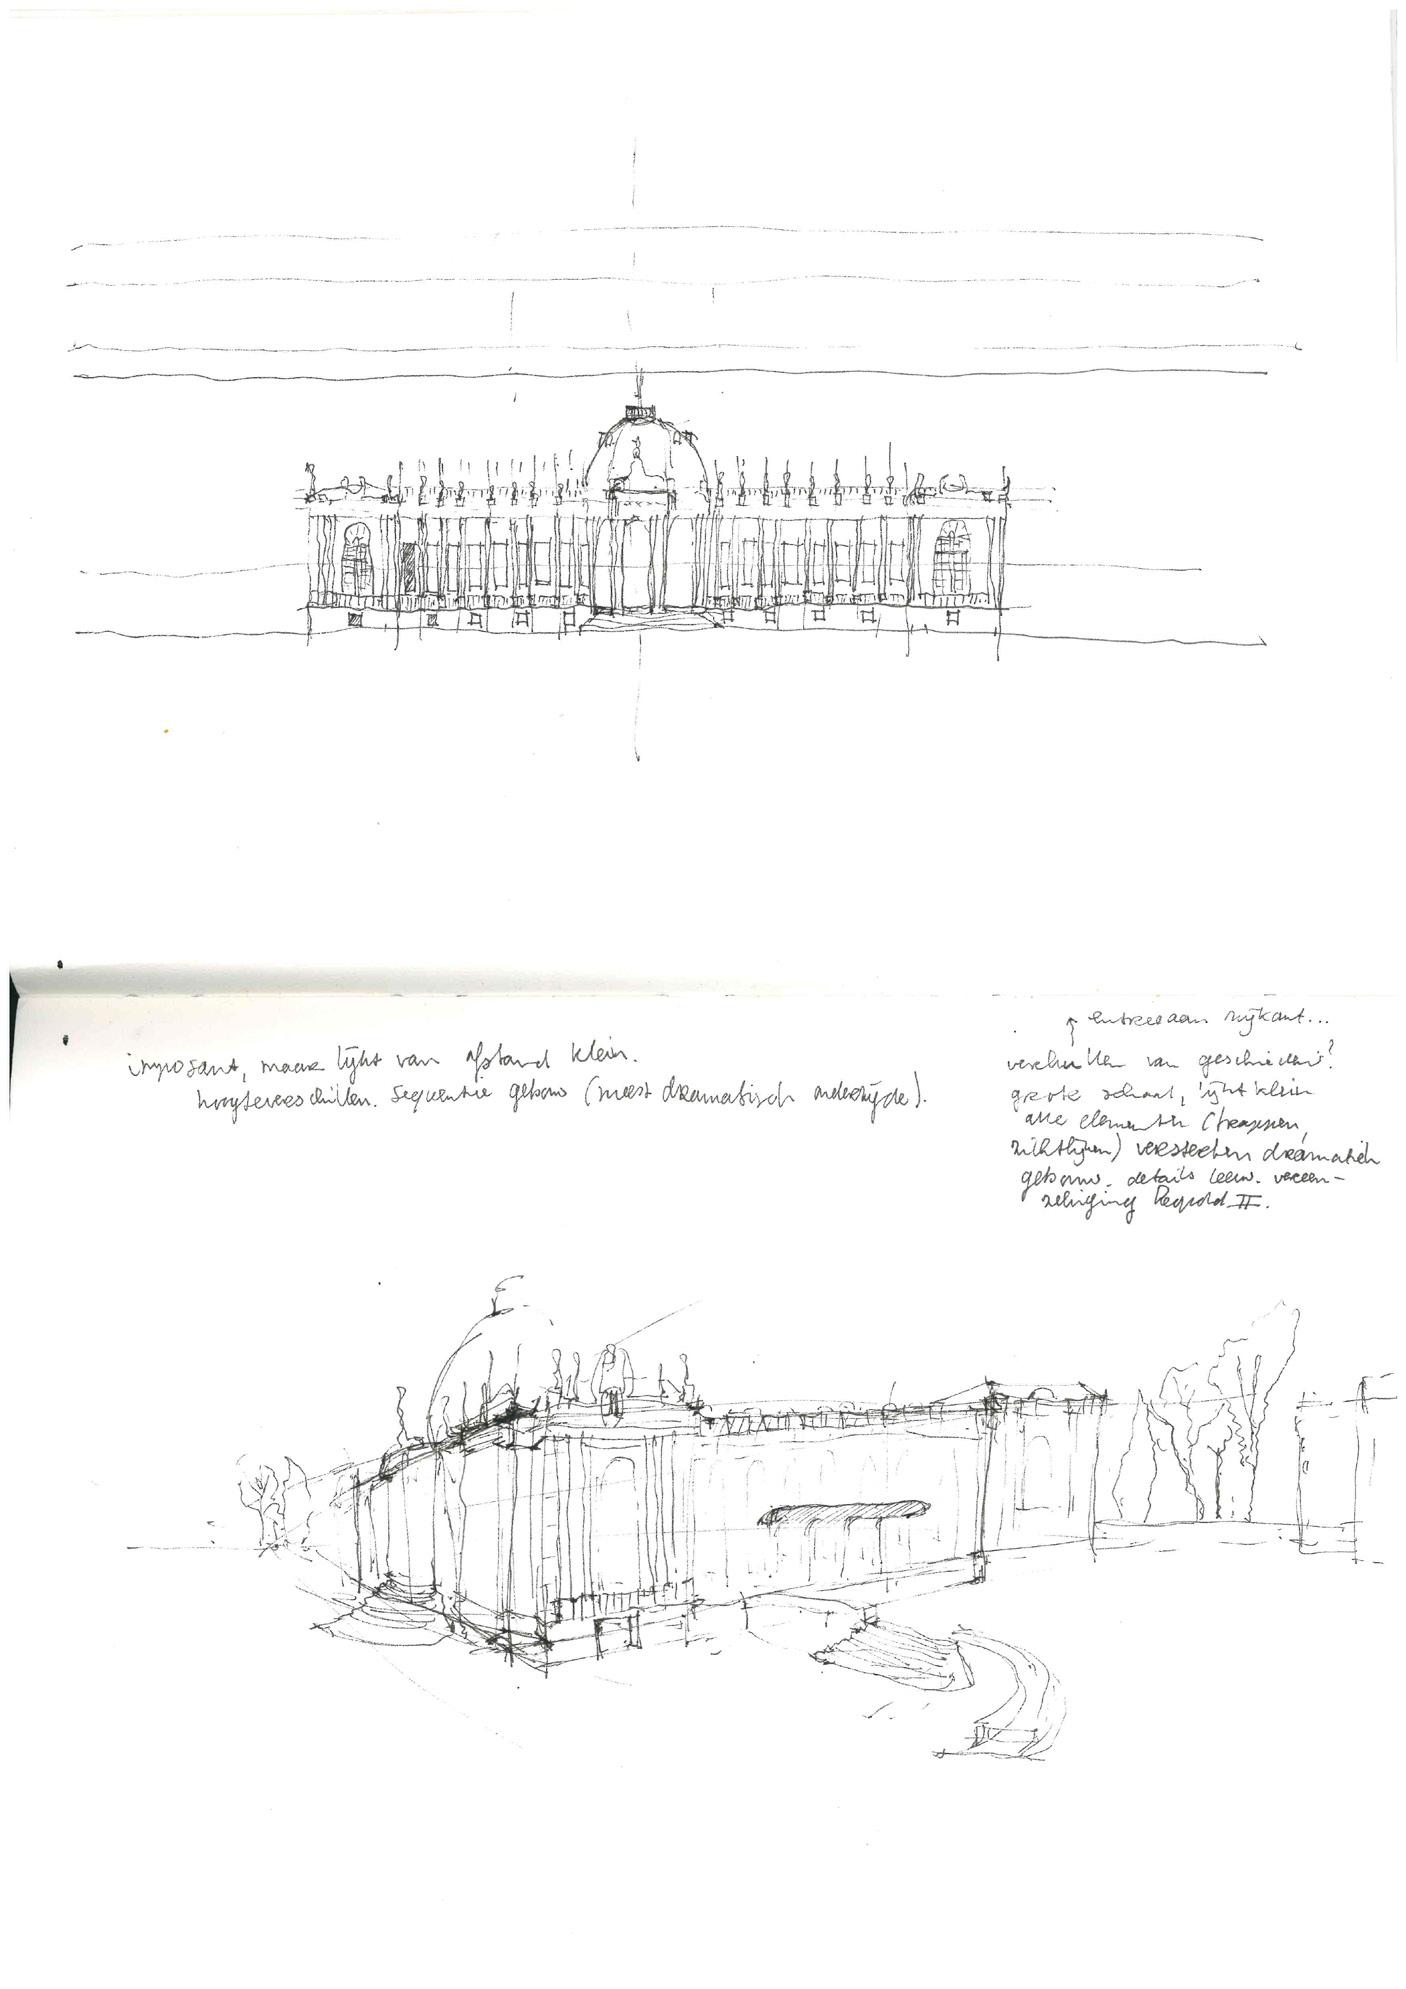 imposant, maar lijkt van afstand klein.
hoogteverschillen. Sequentie gebouw (meest dramatisch onderzijde).
entree aan zijkant...
verhullen van geschiedenis?
grote schaal, lijkt klein
alle elementen (trappen,
zichtlijnen) versterken dramatiek
gebouw. details leeuw. vereen-
zelviging Leopold II.